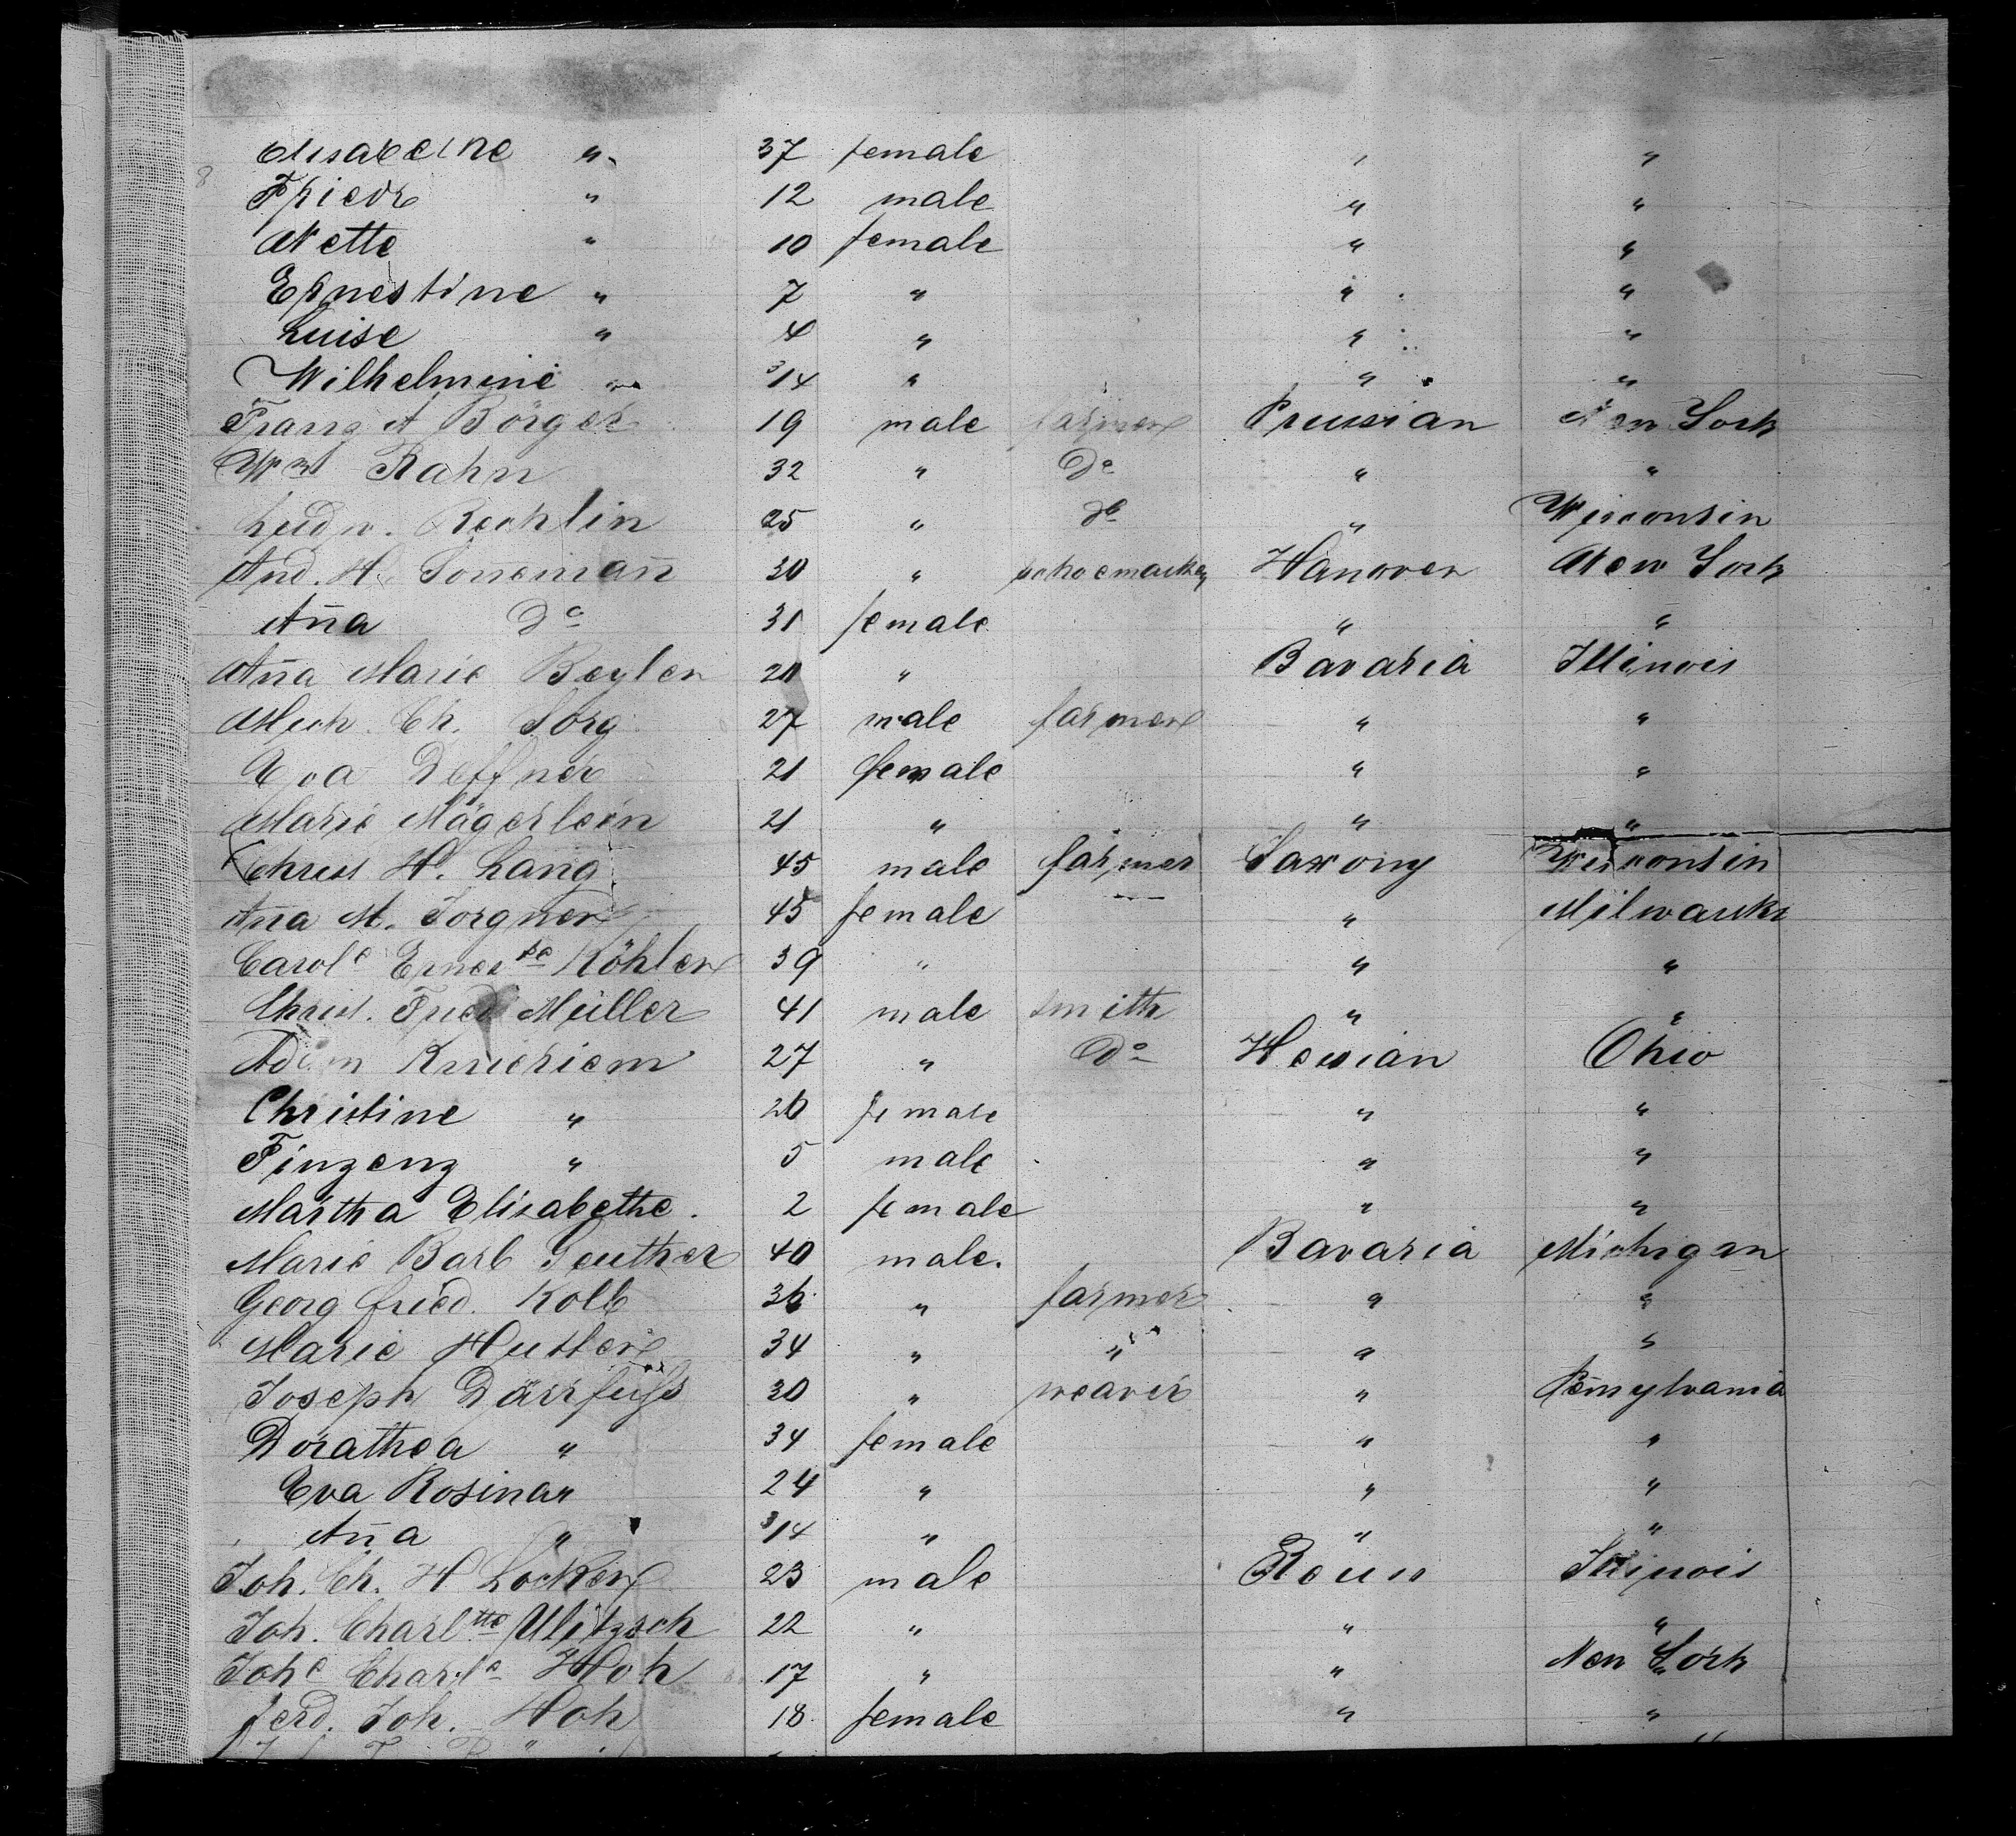 Elisabeine " 37 female , "
Friedr " 12 male " "
Nette " 10 female " "
Ernestine " 7 " " "
Luise " 4 " " "
Wilhelmine " 3/4 " " "
Franz A Börger 19 male farmer Prussian New York
Wm Rahn 32 " do " "
Ludw. Rechlin 25 " do " Wisconsin
And. H. Sonnemañ 30 " schoemacker Hanover New York
Aña do 31 female " "
Aña Marie Beyler 21 " Bavaria Illinois
Mich. Ch. Sorg 27 male farmer " "
Eva Deffner 21 female " "
Marie Mägerlein 21 " " "
Christ H. Lang 45 male farmer Saxony Wisconsin
Aña M. Torgner 45 female " Milwauke
Carole Ernestne Köhler 39 " " "
Christ. Fried Müller 41 male smith " "
Adam Knieriem 27 " do Hessian Ohio
Christine " 26 female " "
Finzenz " 5 male " "
Martha Elisabethe. 2 female " "
Marie Barb Geuther 40 male. Bavaria Michigan
Georg fried. Kolb 36 " farmer " "
Marie Hutler 34 " " " "
Joseph Därrfuss 30 " weaver " Peñsylvania
Dorathea " 34 female " "
Eva Rosina " 24 " " "
Aña " 3/4 " " "
Joh. Ch. H Locker 23 male Reuss Illinois
Joh. Charltte Ulitzsch 22 " " "
Johe Charle Hoh 17 " " New York
Ferd. Joh. Hoh 18 female " "